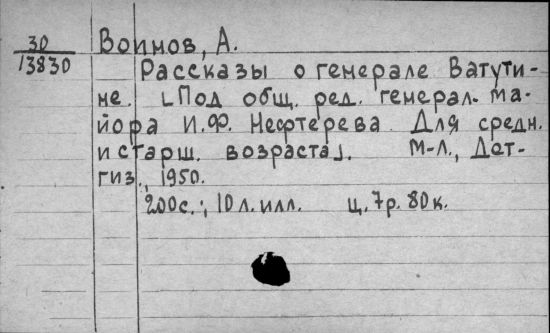 30
13830
Воинов, А.
Рассказы о генерале Ватути-
не. [Под общ. ред. генерал-ма-
йора И.Ф. Нефтерева Для средн.
и старш. возраста]. М-Л., Дет-
гиз., 1950.
200с.; 10 л. илл. ц. 7р. 80к.